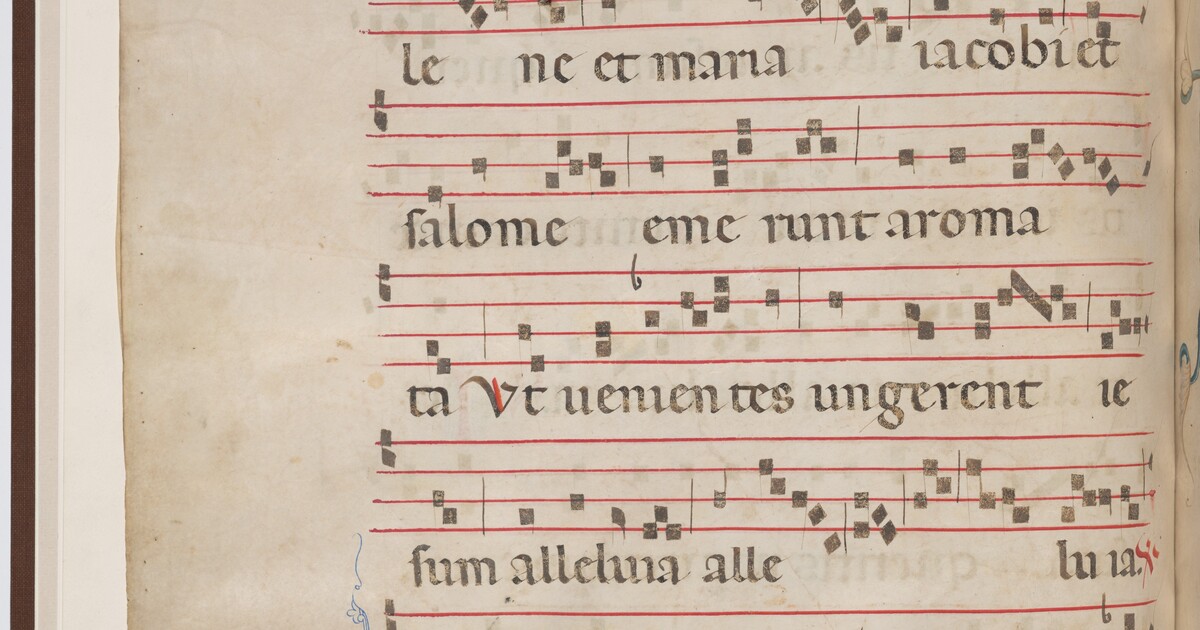 le ne et maria iacobi et
salome eme runt aroma
ta Vt uenien tes ungerent ie
sum alleluia alle lu ia.